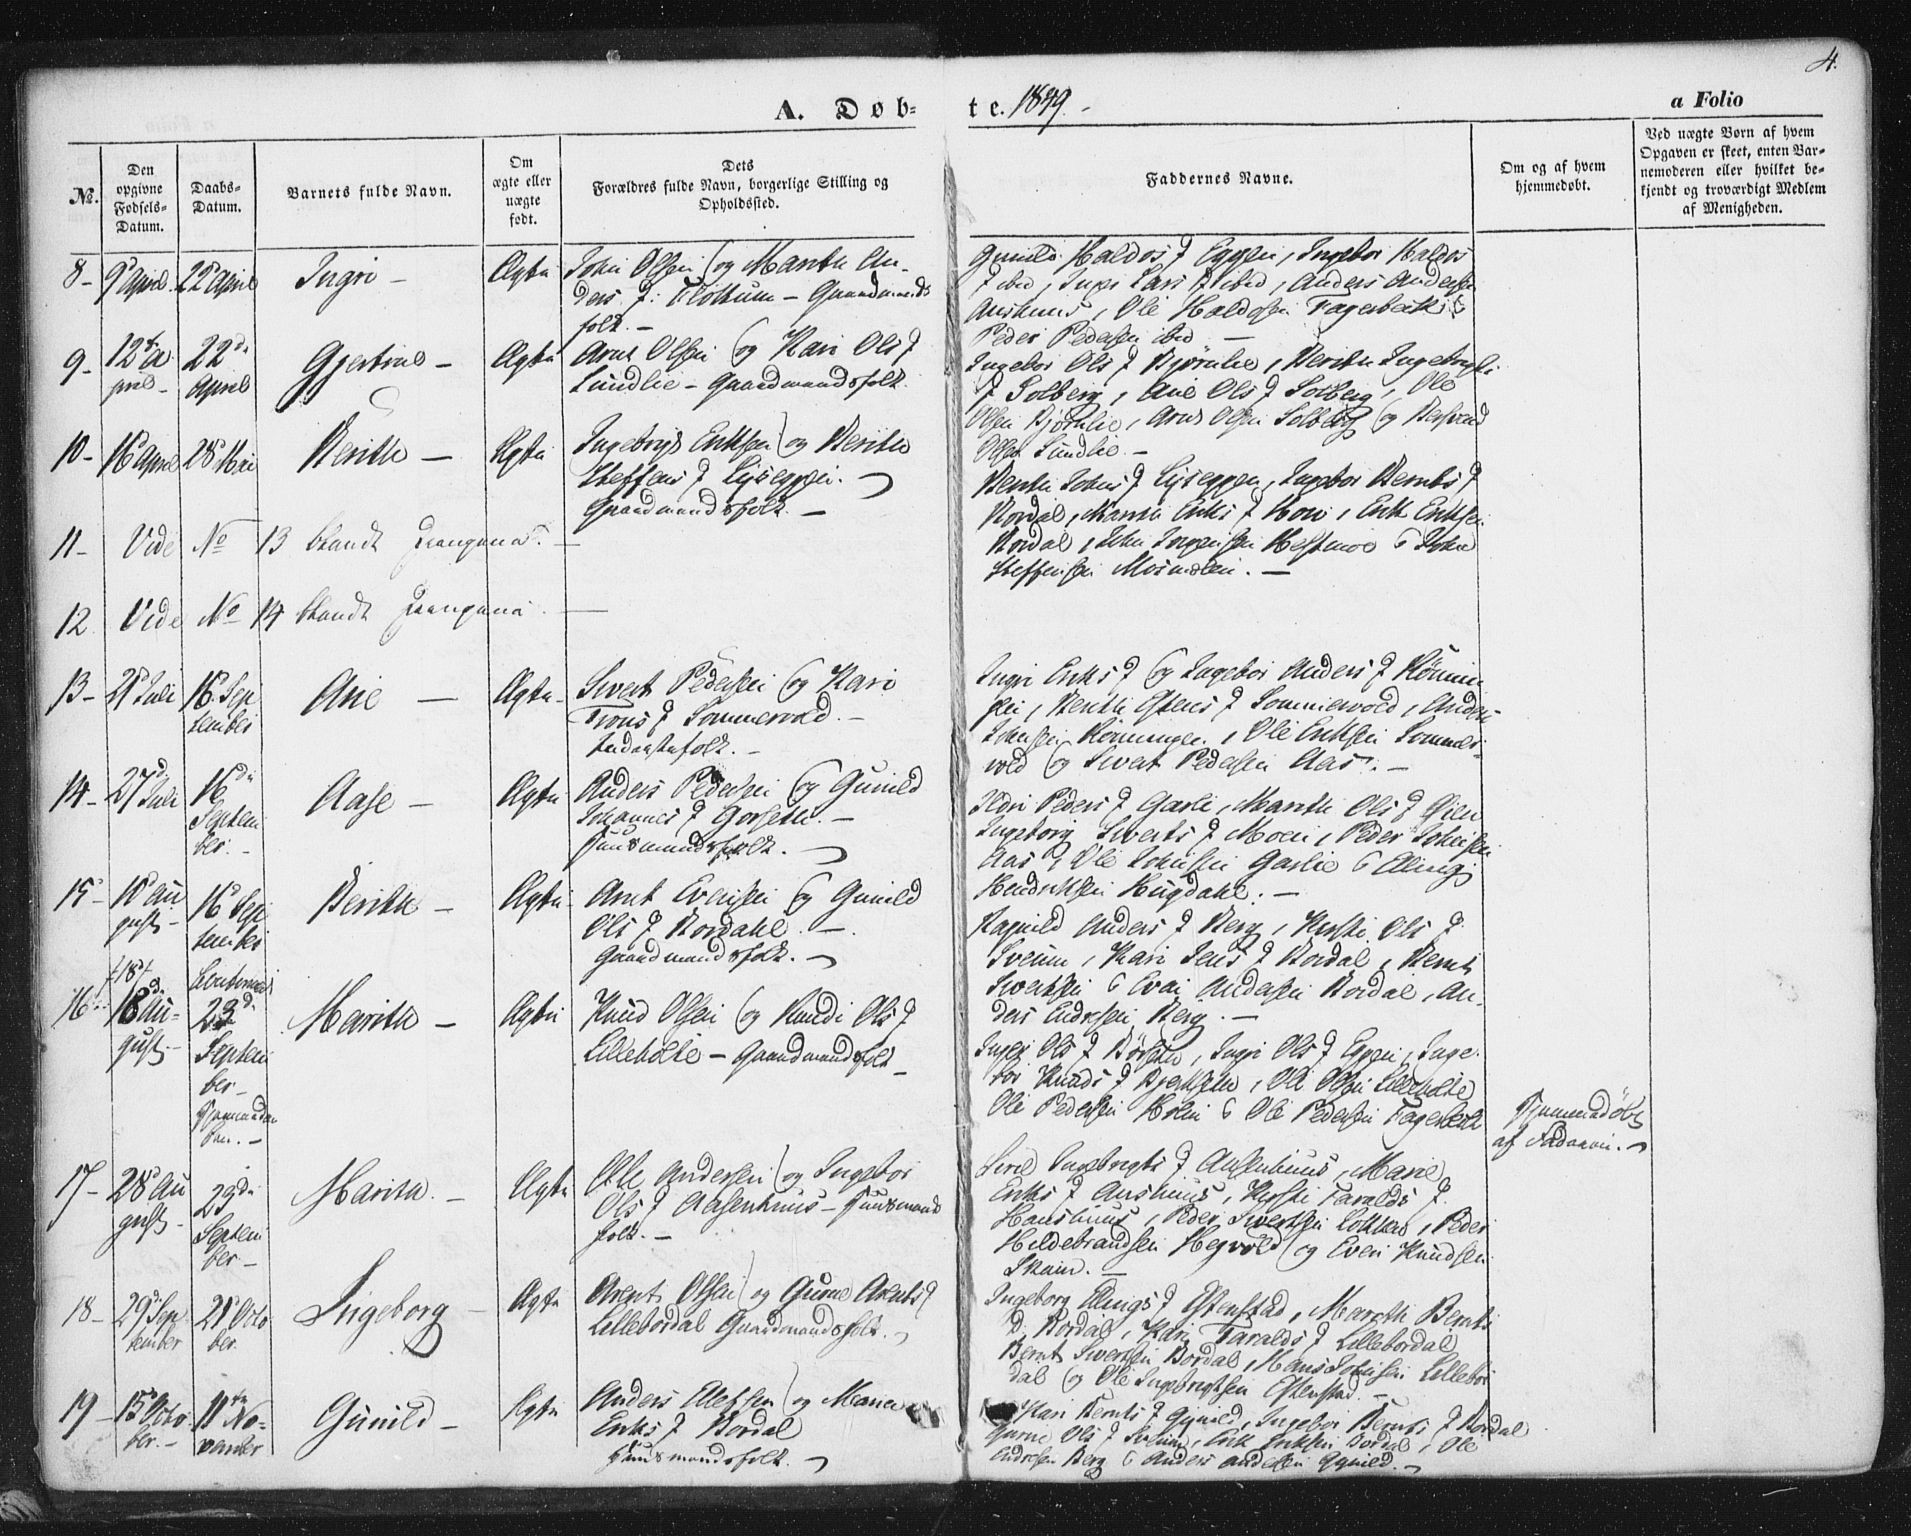 4.
A. Døb-
te. 1849.
a Folio
No.
Den opgivne Fødsels-Datum.
Daabs-Datum.
Barnets fulde Navn.
Om ægte eller uægte født.
Dets Forældres fulde Navn, borgerlige Stilling og Opholdssted.
Faddernes Navne.
Om og af hvem hjemmedøbt.
Ved uægte Børn af hvem Opgaven er skeet, enten Barnemoderen eller hvilket bekjendt og troværdigt Medlem af Menigheden.
8-
9d April
22d April
Ingri -
Ægte
John Olsen og Marith An-
ders D: Flottum - Gaardmands
folk. -
Gunild Haldos D Eggen, Ingebor Haldos
D ibid, Ingri Lars D ibid, Anders Andersen
Aushuus, Ole Haldosen Fagerbæk &
Peder Pedersen ibid -
9-
12te A
pril -
22de
April
Gjertrud -
Ægte
Arnt Olsen og Kari Ols D
Lundlie - Gaardmandsfolk
Ingebor Ols D Bjørnlie, Berith Ingebrigts
D Solberg, Ane Ols D Solberg, Ole
Olsen Bjørnlie, Arnt Olsen Solberg og
Olsen Lundlie -
10-
16d April
28d Mai
Berith -
Ægte
Ingebrigt Eriksen og Berith
Steffens D Lyseggen.
Gaardmandsfolk. -
Berith Johns D Lyseggen, Ingebor Bernts D
Bordal, Marith Eriks D Hov, Erik Eriksen
Bordal, John Ingersen Hestmoe & John
Steffensen -
11-
Vide No 13 blandt Drengene. -
12
Vide No 14 blandt Drengene. -
13-
21d Juli
16d Sep
tember
Ane -
Ægte -
Sivert Pedersen og Kari
Trons D Sommervold. -
Inderstefolk. -
Ingri Eriks D og Ingebor Anders D Rønnin
gen, Berith Estens D Sommervold, Anders
Johnsen Rønningen, Ole Eriksen Sommer
vold og Sivert Pedersen Aas. -
14-
27d Juli
16de
Septem
ber. -
Aase -
Ægte
Anders Pedersen og Gunild
Johannes D Gorseth. -
Huusmandsfolk.
Ildri Peders D Garli, Marith Ols D
Ingeborg Siverts D Moen, Peder Johnsen
Aas, Ole Johnsen Garlie & Elling
Hendriksen Hugdahl. -
15-
10d Au
gust -
16d Sep
tember
Berith -
Ægte
Arnt Evensen og Gunild
Ols D Bordahl. -
Gaardmandsfolk. -
Ragnild Anders D Berg, Kirsti Ols D
Sveum, Kari Jens D Bordal, Bernt
Sivertsen & Even Andersen Bordal, An-
ders Endresen Berg. -
16
18d Au-
gust -
23de
Septem
ber -
Marith -
Ægte
Knud Olsen og Randi Ols D
Lilleholte - Gaardmandsfolk
Inger Ols D Børseth, Ingri Ols D Eggen, Inge
bor Knuds D, Ole Olsen Lilleholte
Ole Pedersen Holen & Ole Pedersen Fagerbæk
Hjemmedøbt
af Faderen. -
17-
28d Au
gust -
23de
Septem
ber -
Marith. -
Ægte
Ole Andersen og Ingebor
Ols D Aasenhuus - Huusmands
folk. -
Siril Ingebrigts D Aasenhuus, Marie
Eriks D Aushuus, Kirsti Faralds D
Haushuus, Peder Sivertsen, Peder
Hildebrandsen Hegvold og Even Knudsen
Skain. -
18-
29d Sep
tember
21d Octo
ber
Ingeborg -
Ægte
Arent Olsen og Gurone Arents D
Lillebordal Gaardmandsfolk.
Ingeborg Ellings D Estenstad, Marith Bernts
D. Bordal, Kari Faralds D Lillebordal
Bernt Sivertsen Bordal, Hans Johnsen Lillebor
dal og Ole Ingebrigtsen Estenstad. -
19-
15d Octo
ber. -
11te No-
vember
Gunild -
Ægte
Anders Ellefsen og Maria
Eriks D Bordal
Huusmandsfolk.
Kari Bernts D Gynild, Ingebor Bernts D Bordal
Gurone Ols D Sveum, Erik Eriksen Bordal, Ole
Endresen Berg & Anders Andersen Gynild. -